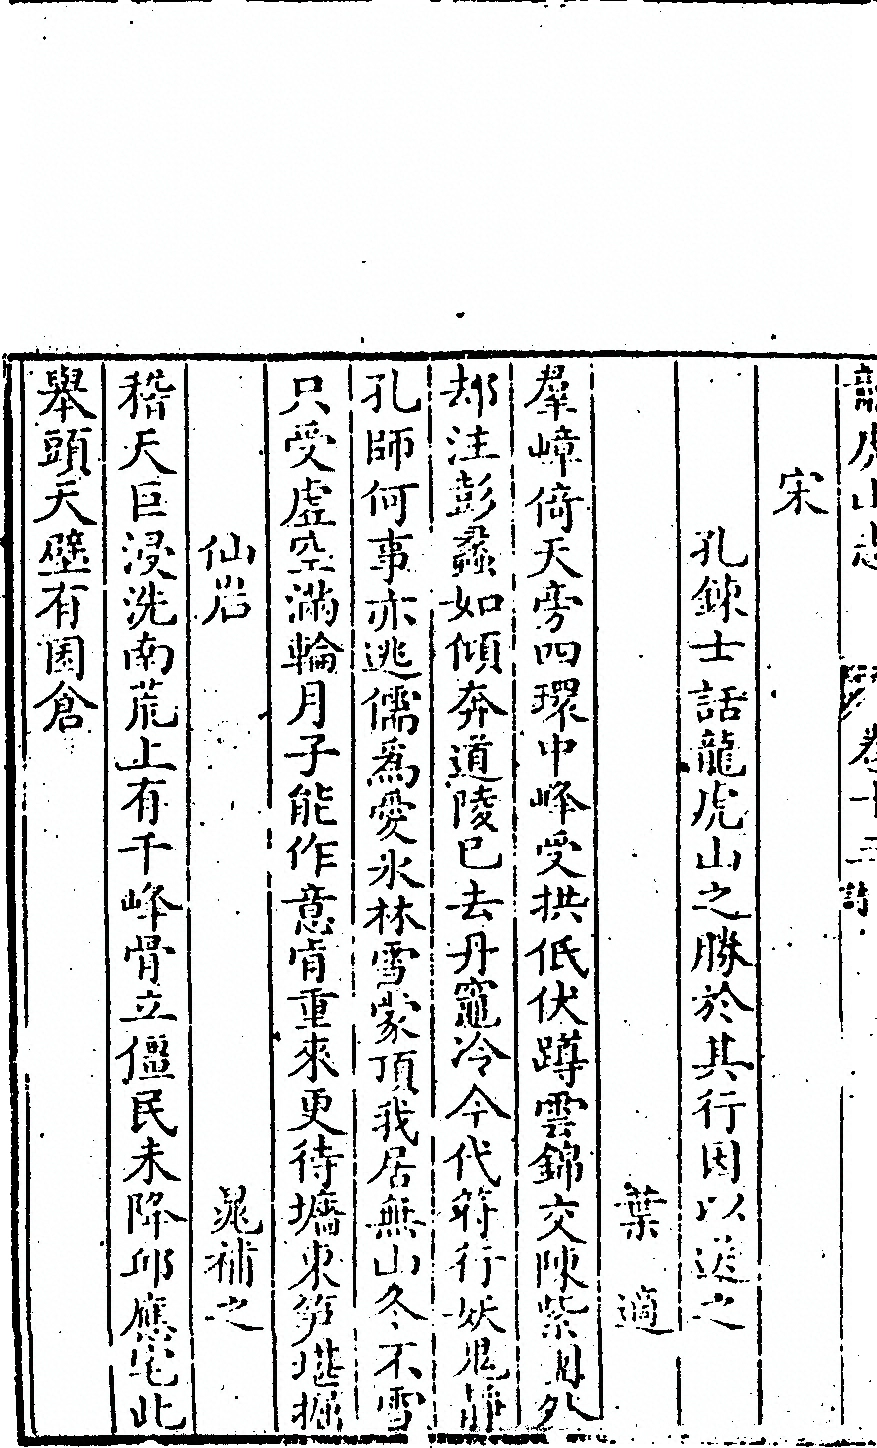 龍虎山志 卷十三 詩
宋
孔鍊士話龍虎山之勝於其行因以送之
葉適
羣嶂倚天旁四環中峰受拱低伏蹲雲錦交陳紫周外
却注彭蠡如傾奔道陵已去丹竈冷今代符行妖鬼靜
孔師何事亦逃儒爲愛氷林雪蒙頂我居無山冬不雪
只受虛空滿輪月子能作意肯重來更待墻東笋堪掘
仙岩
晁補之
稽天巨浸洗南荒上有千峰骨立僵民未降邱應宅此
舉頭天壁有囷倉